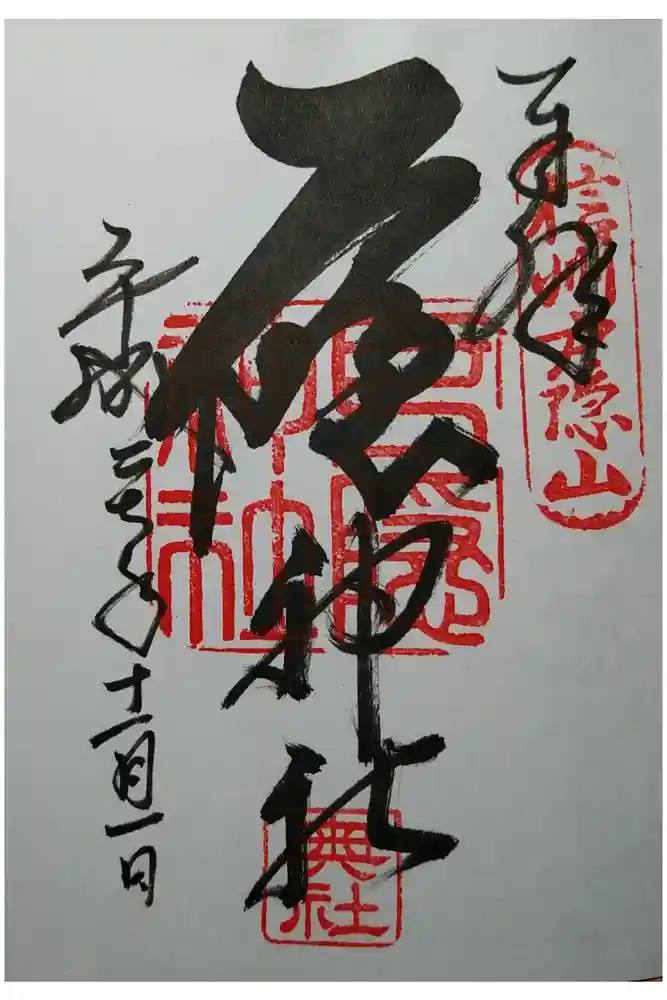 奉拝
信州戸隠山
戸隠神社
戸隠神社
奥社
平成二七年十一月一日